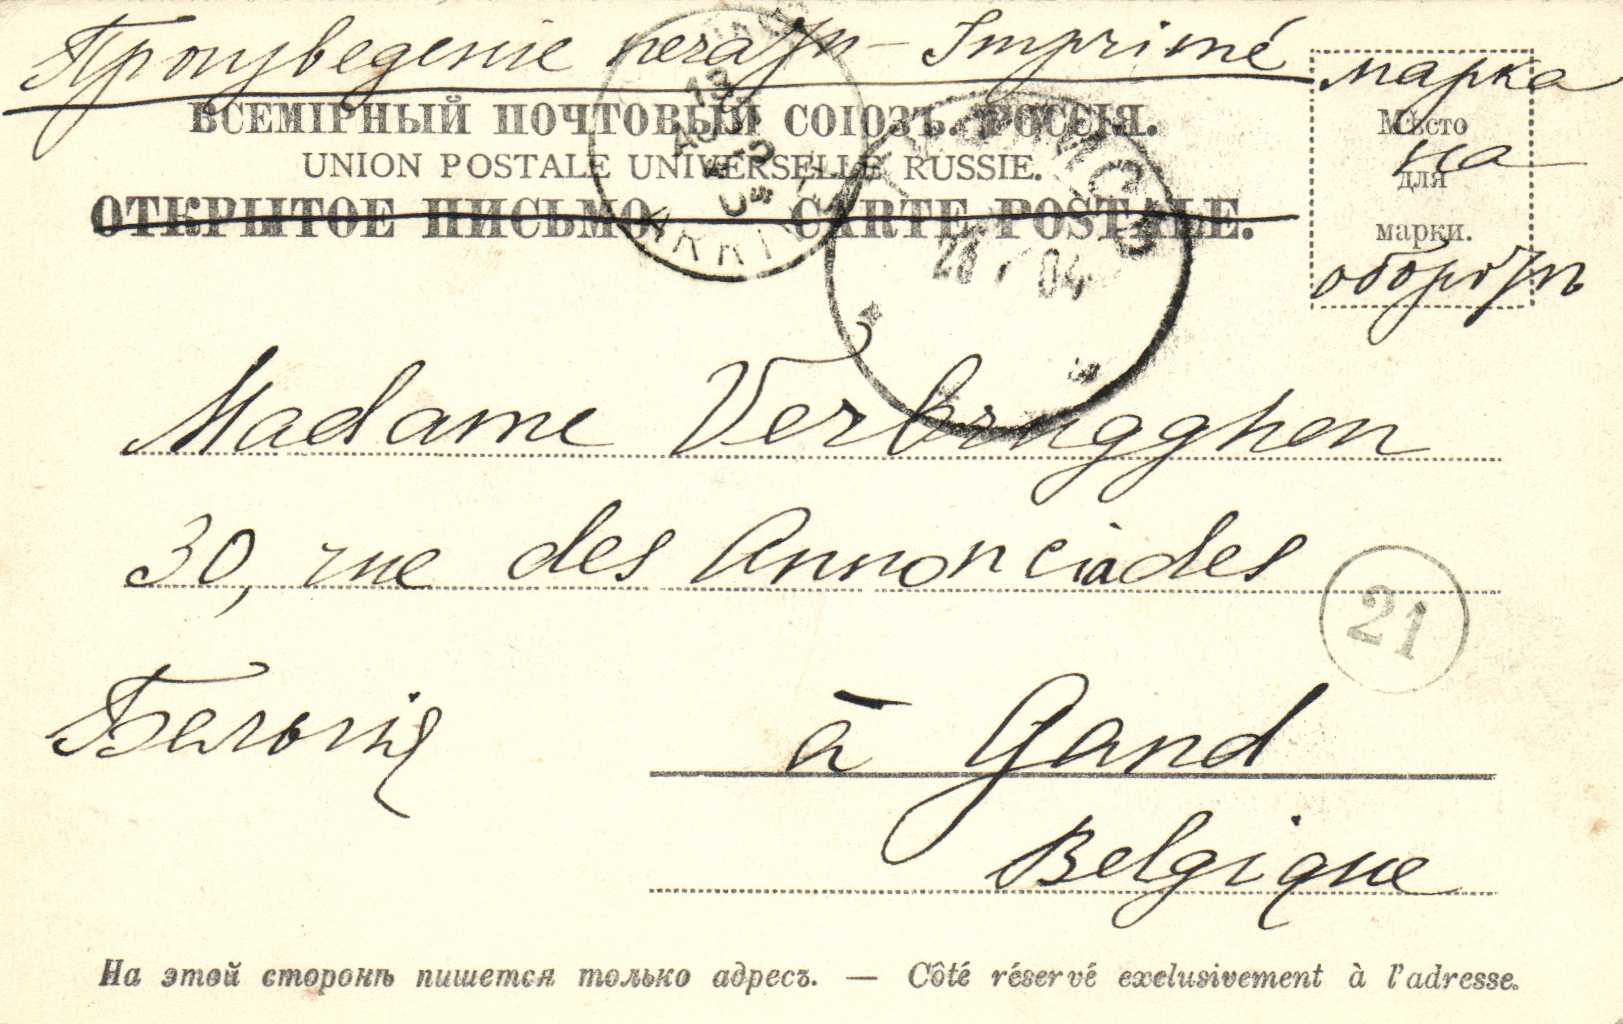 Произведеніе печати – Imprimé
ВСЕМІРНЫЙ ПОЧТОВЫЙ СОЮЗЪ. РОССІЯ.
UNION POSTALE UNIVERSELLE RUSSIE.
ОТКРЫТОЕ ПИСЬМО CARTE POSTALE.
Мѣсто
для
марки.
марка
на
оборотѣ
13
AOUT
ARRI
28 04
Madame Verbrugghen
30, rue des Annonciades
21
Бельгія
à Gand
Belgique
На этой сторонѣ пишется только адресъ. — Côté réservé exclusivement à l'adresse.